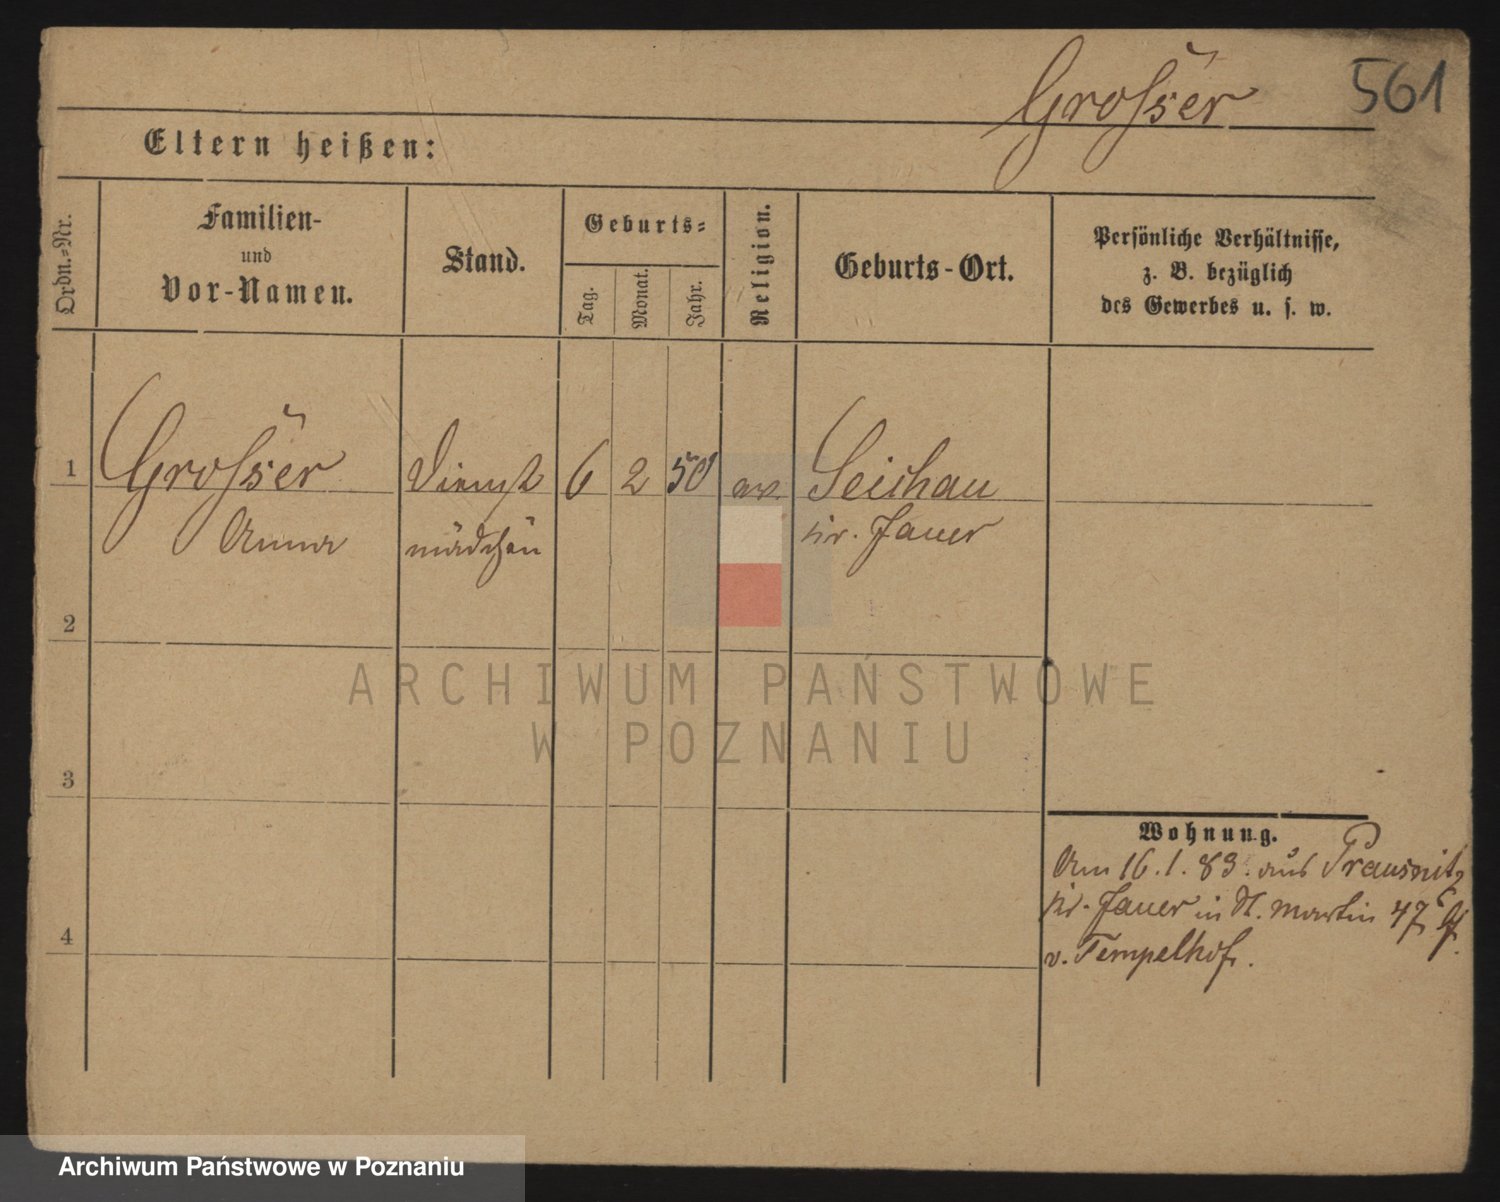 Großer
561
Eltern heißen:
Ordn.=Nr.
Familien-
und
Vor-Namen.
Stand.
Geburts=
Tag.
Monat.
Jahr.
Religion.
Geburts-Ort.
Persönliche Verhältnisse,
z. B. bezüglich
des Gewerbes u. s. w.
1
Großer
Anna
Dienst
mädchen
6
2
50
ev.
Seichau
Kr. Jauer
2
3
4
Wohnung.
Am 16.1.83. aus Prausnitz
Kr. Jauer in St. Martin 47 bei
v. Tempelhof.
ARCHIWUM PAŃSTWOWE
W POZNANIU
Archiwum Państwowe w Poznaniu